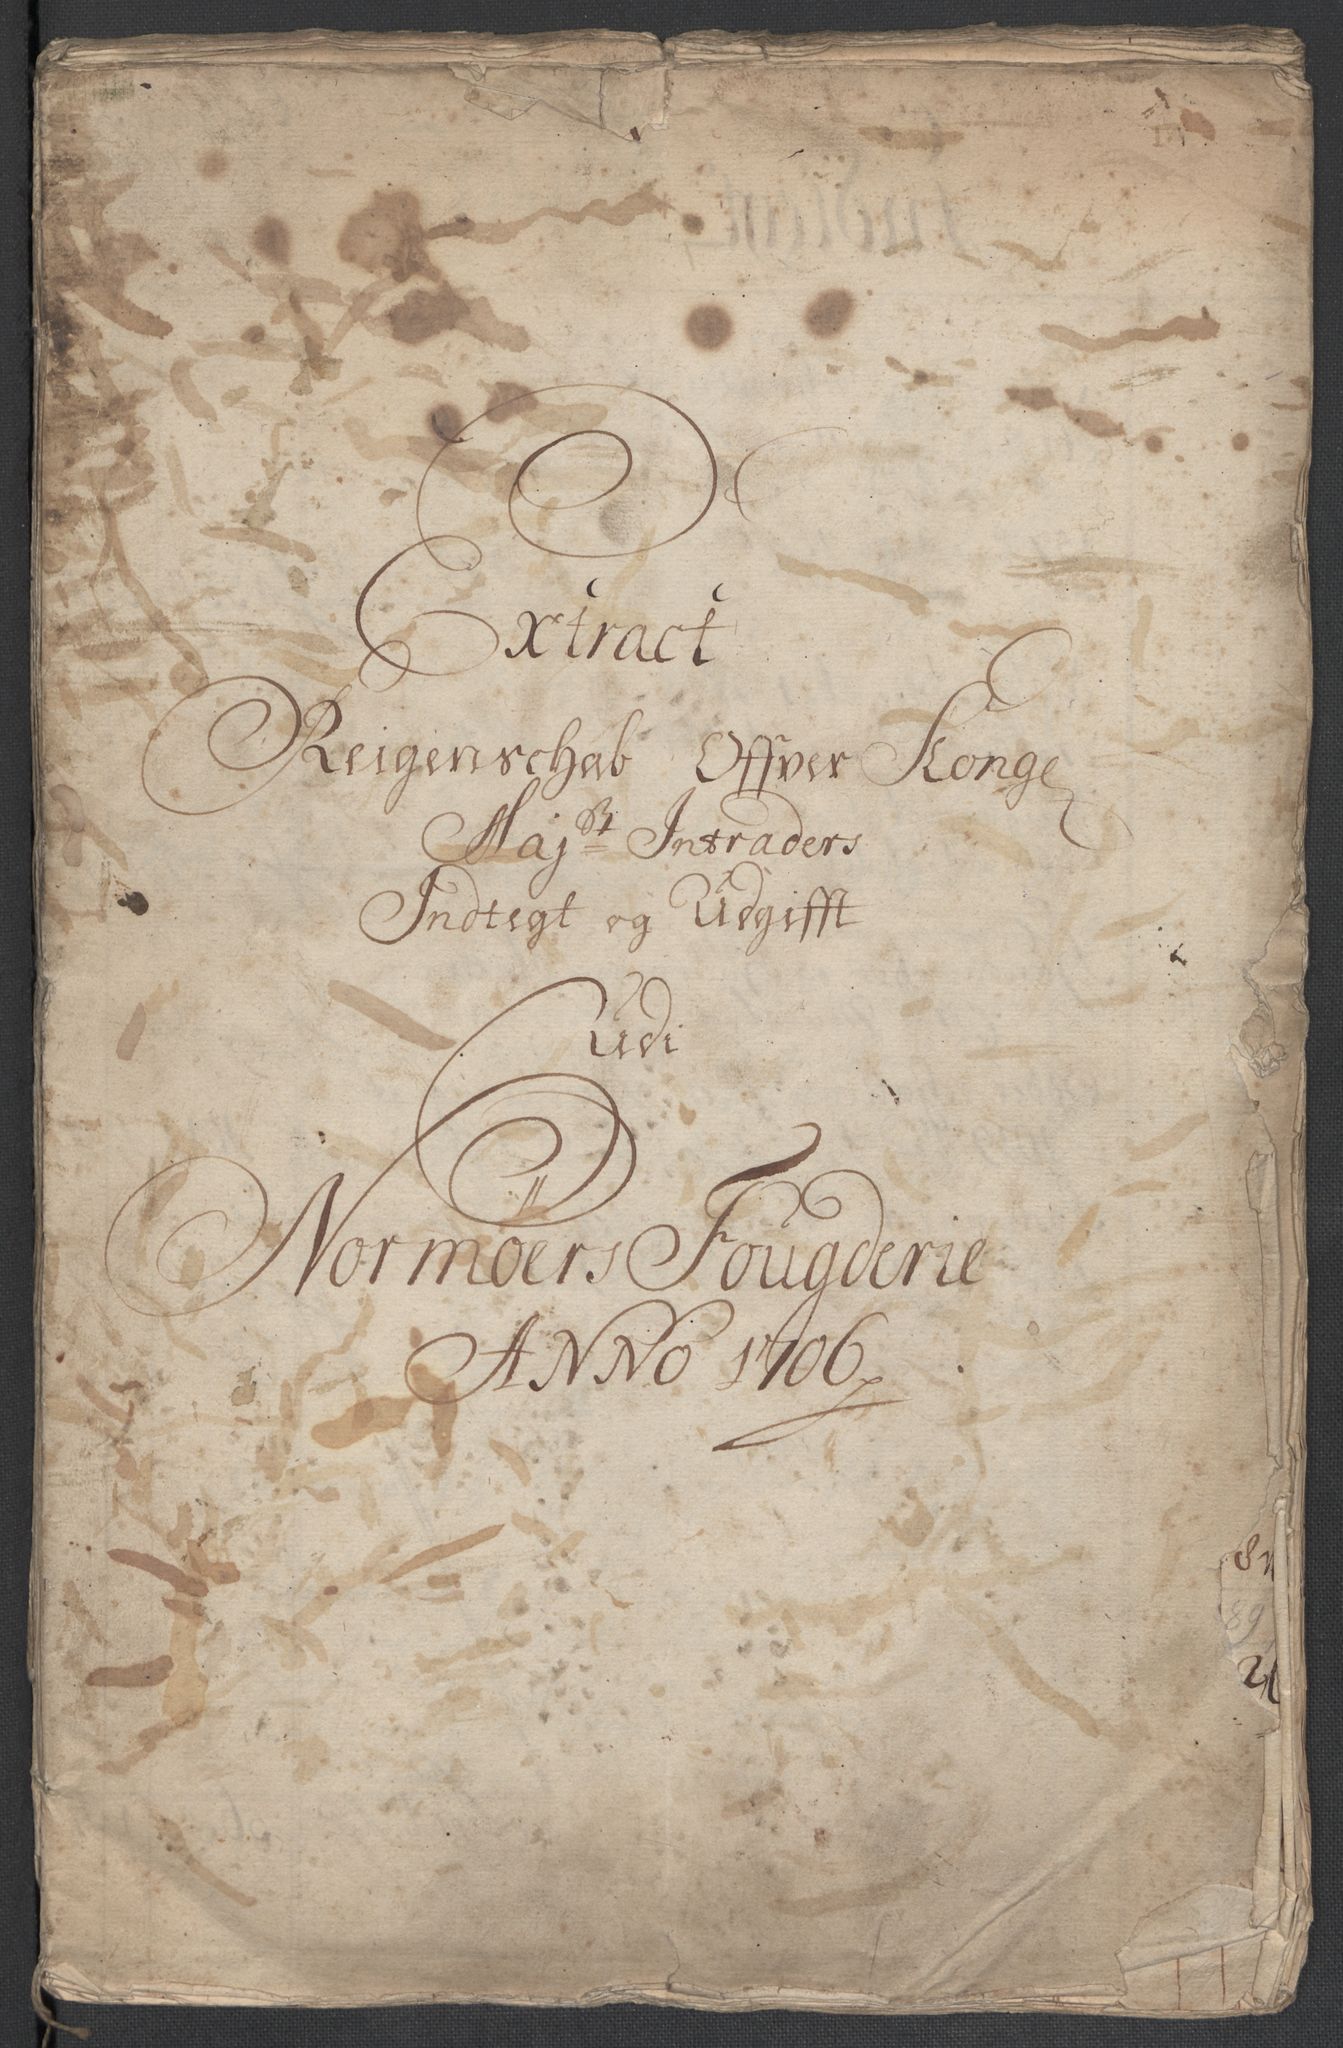 Extract
Reigenschab Offver Konge
Maj.st Intraders
Indtegt og Udgifft
Udi
Normöers Fougderie
ANNO 1706